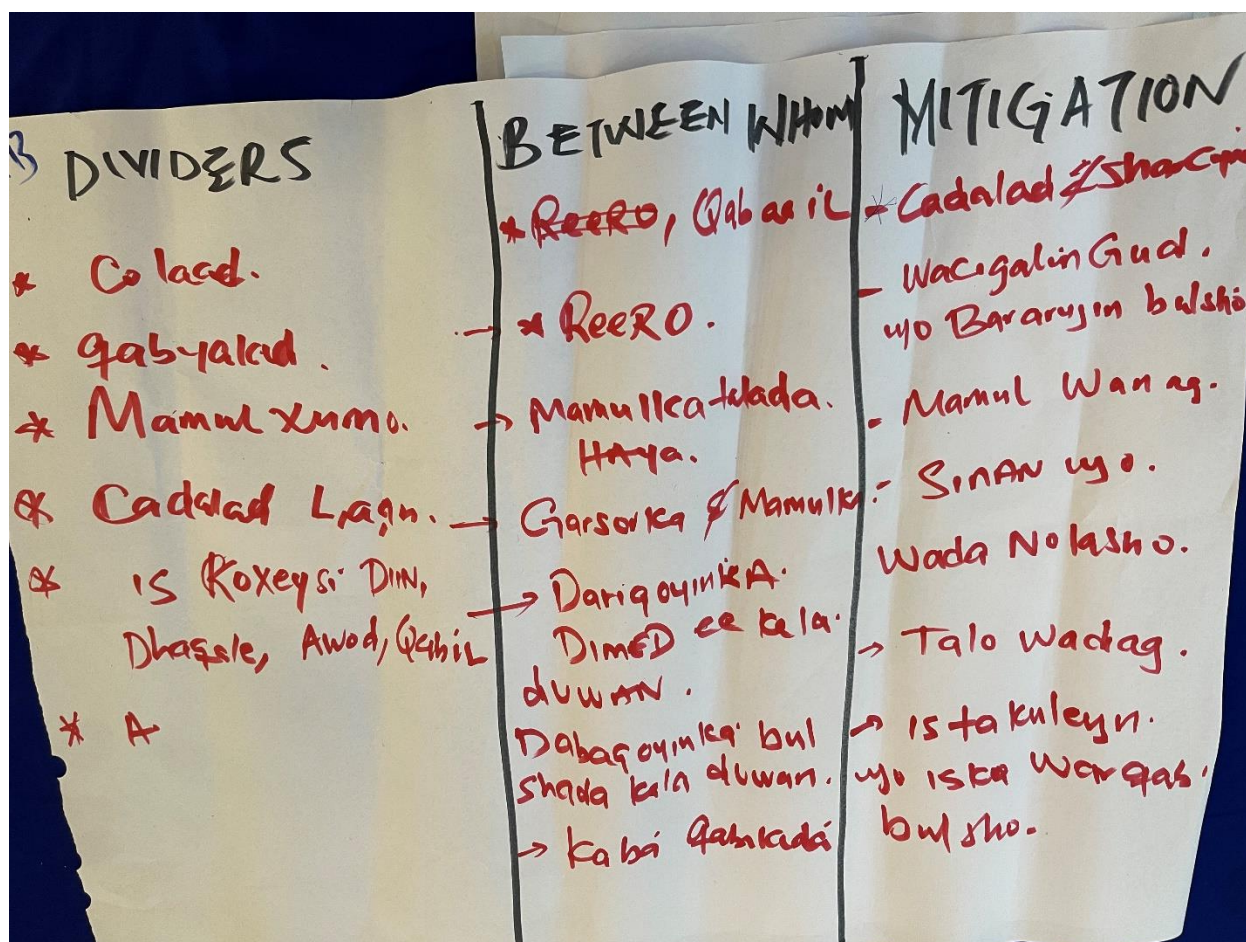 DIVIDERS
* Colaad.
* qabyalad.
* Mamul xumo.
* Cadalad L,aqn.
* is Koxeysi DIIN,
Dhaqsle, Awod, Qabil
* A
BETWEEN WHOM
* ReeRO, Qabaail
* ReeRO.
→ Mamulka talada.
HAya.
Garsorka & Mamulk
→ DariqoyinkA.
DimeD ee kala.
duwan.
Dabaqoyinka bul
shada kala duwan.
→ Kaba qabikadá
MITIGATION
Cadalad &
- Wacigalin Gud.
uyo Bararujin bulsho
- Mamul Wanag.
- SinAN uyo.
Wada Nolasho.
→ Talo wadag.
→ is takuleyn.
uyo iska Warqab.
bulsho.